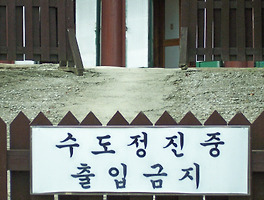 수도정진중
출입금지